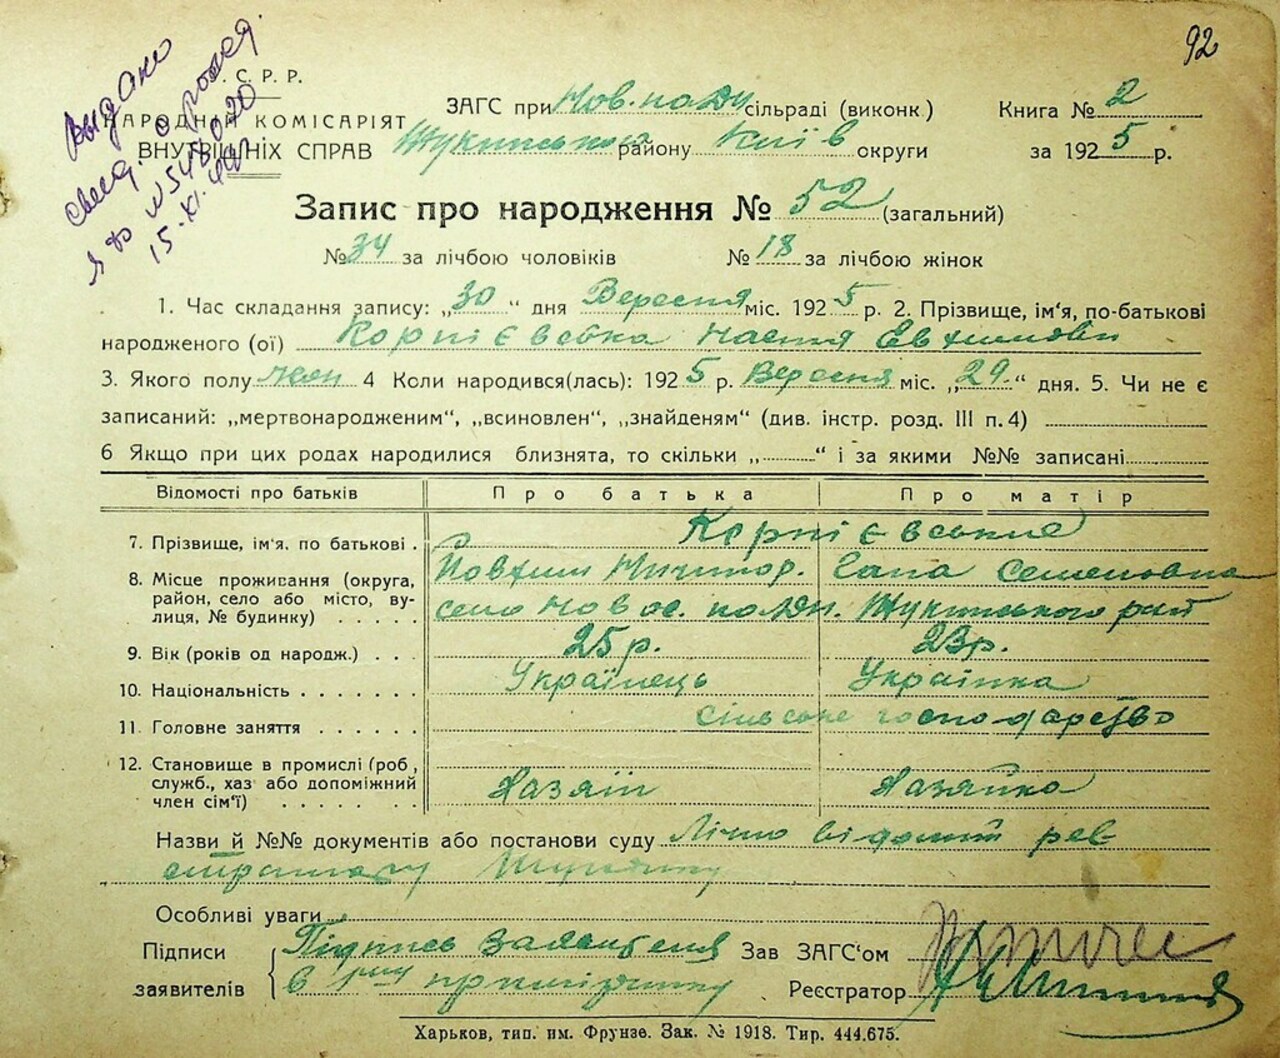 92
Выдано
свид. о рожд.
У. С. Р. Р.
НАРОДНІЙ КОМІСАРІЯТ
ВНУТРІШНІХ СПРАВ
15-XI-
ЗАГС при Нов. сільраді (виконк.)
Жукинського району Київ округи
Книга № 2
за 1925 р.
Запис про народження № 52 (загальний)
№ 34 за лічбою чоловіків № 18 за лічбою жінок
1. Час складання запису: „30“ дня Вересня міс. 1925 р. 2. Прізвище, ім'я, по-батькові
народженого (ої) Корнієвська Настя Евхимовн
3. Якого полу жон 4 Коли народився(лась): 1925 р. Вересня міс. „29.“ дня. 5. Чи не є
записаний: „мертвонародженим“, „всиновлен“, „знайденям“ (див. інстр. розд. III п. 4)
6 Якщо при цих родах народилися близнята, то скільки „ “ і за якими №№ записані
Відомості про батьків Про батька Про матір
7. Прізвище, ім'я, по батькові . Корнієвські
Йовхим Ничипор. Семеновна
8. Місце проживання (округа,
район, село або місто, ву-
лиця, № будинку) . . . . .
село Нов Жукинського
9. Вік (років од народж.) . . . 25 р. 23 р.
10. Національність . . . . . . . Українець Українка
11. Головне заняття . . . . . . сільське господарство
12. Становище в промислі (роб.,
служб., хаз або допоміжний
член сім'ї) . . . . . . .
Хазяїн Хазяйка
Назви й №№ документів або постанови суду Лічно відомий реє
стратору
Особливі уваги
Підписи
заявителів
Підпись заявителя
в примірнику
Зав ЗАГС'ом
Реєстратор
Харьков, тип. им. Фрунзе. Зак. № 1918. Тир. 444.675.